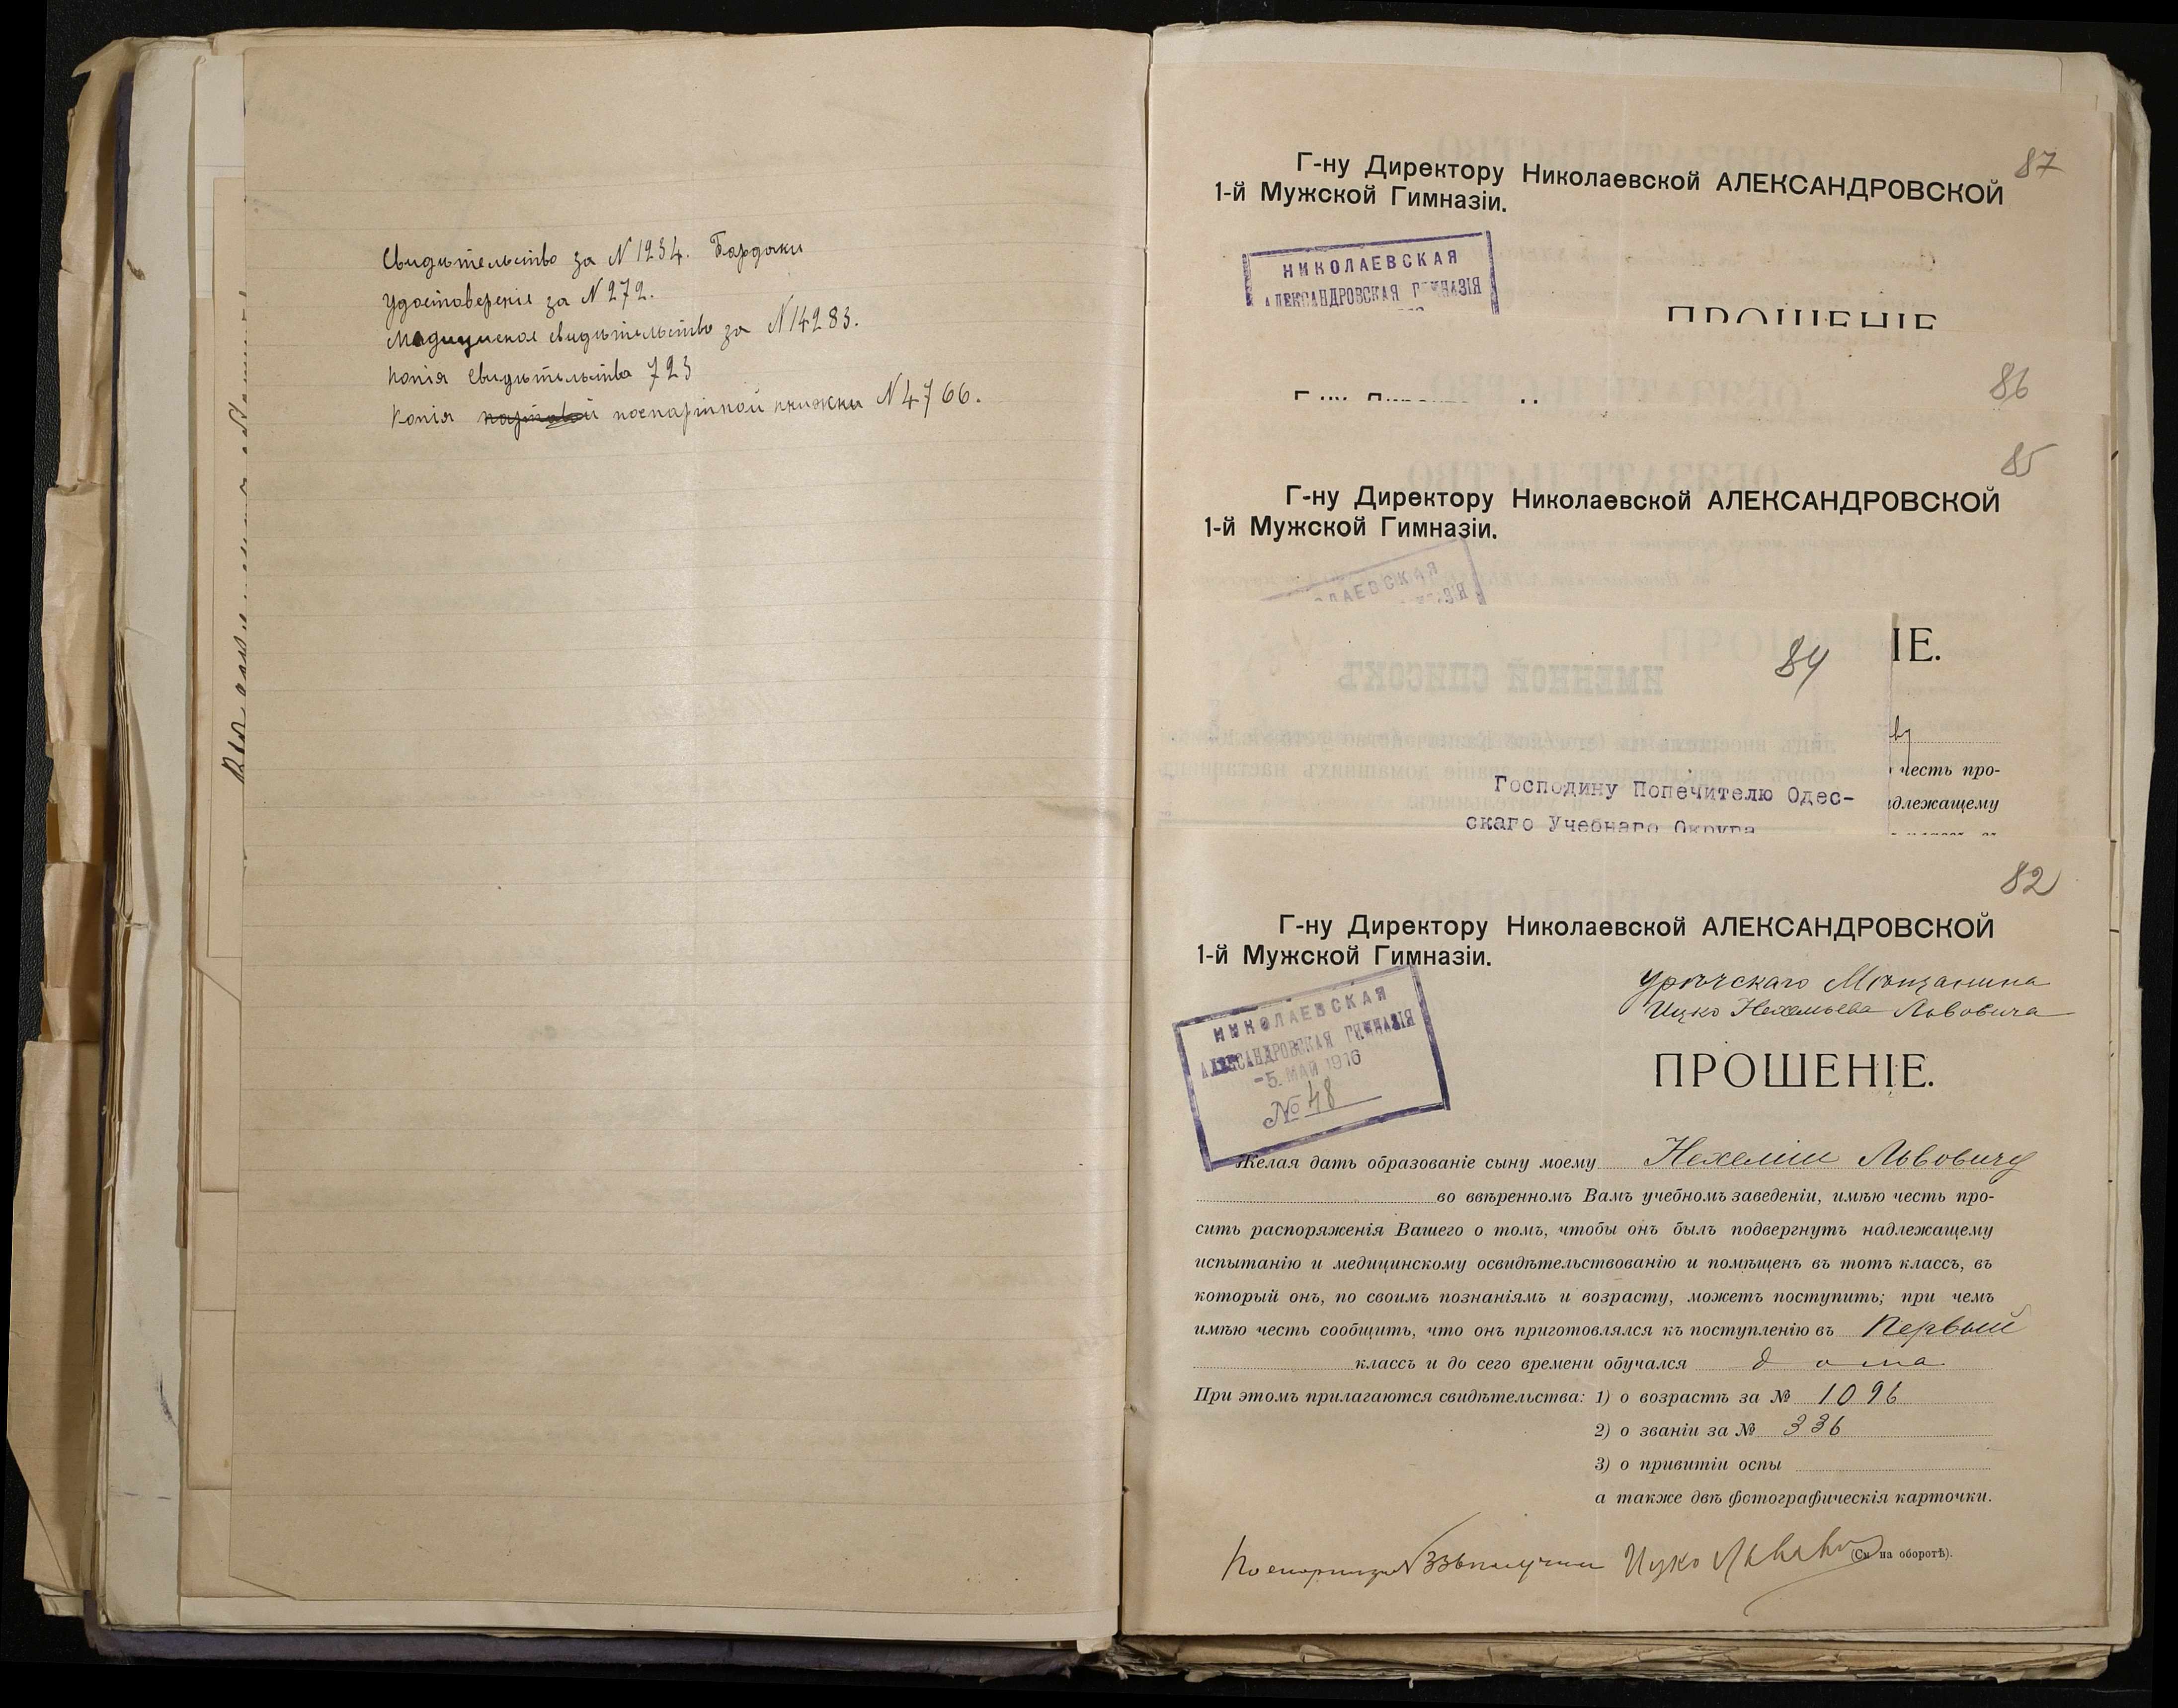 Свидѣтельство за N 1234. Бардаки
Удостоверенія за N 272.
Медицинское свидѣтельство за N 14283.
Копія свидѣтельства 723
Копія паспортной книжки N 4766.
87
Г-ну Директору Николаевской АЛЕКСАНДРОВСКОЙ
1-й Мужской Гимназіи.
НИКОЛАЕВСКАЯ
АЛЕКСАНДРОВСКАЯ ГИМНАЗІЯ
ПРОШЕНІЕ
86
85
Г-ну Директору Николаевской АЛЕКСАНДРОВСКОЙ
1-й Мужской Гимназіи.
84
ІЕ.
честь про-
длежащему
Господину Попечителю Одес-
скаго Учебнаго Округа
82
Г-ну Директору Николаевской АЛЕКСАНДРОВСКОЙ
1-й Мужской Гимназіи.
Мѣщанина
Ицко Нехемьева Львовича
НИКОЛАЕВСКАЯ
АЛЕКСАНДРОВСКАЯ ГИМНАЗІЯ
-5. МАЙ 1916
№ 48
ПРОШЕНІЕ.
Желая дать образованіе сыну моему Нехеміи Львовичу
во ввѣренномъ Вамъ учебномъ заведеніи, имѣю честь про-
сить распоряженія Вашего о томъ, чтобы онъ былъ подвергнутъ надлежащему
испытанію и медицинскому освидѣтельствованію и помѣщенъ въ тотъ классъ, въ
который онъ, по своимъ познаніямъ и возрасту, можетъ поступить; при чемъ
имѣю честь сообщить, что онъ приготовлялся къ поступленію въ Первый
классъ и до сего времени обучался дома
При этомъ прилагаются свидѣтельства: 1) о возрастѣ за № 1096
2) о званіи за № 336
3) о привитіи оспы
а также двѣ фотографическія карточки.
N 336 получил Ицко Львович
(См. на оборотѣ).